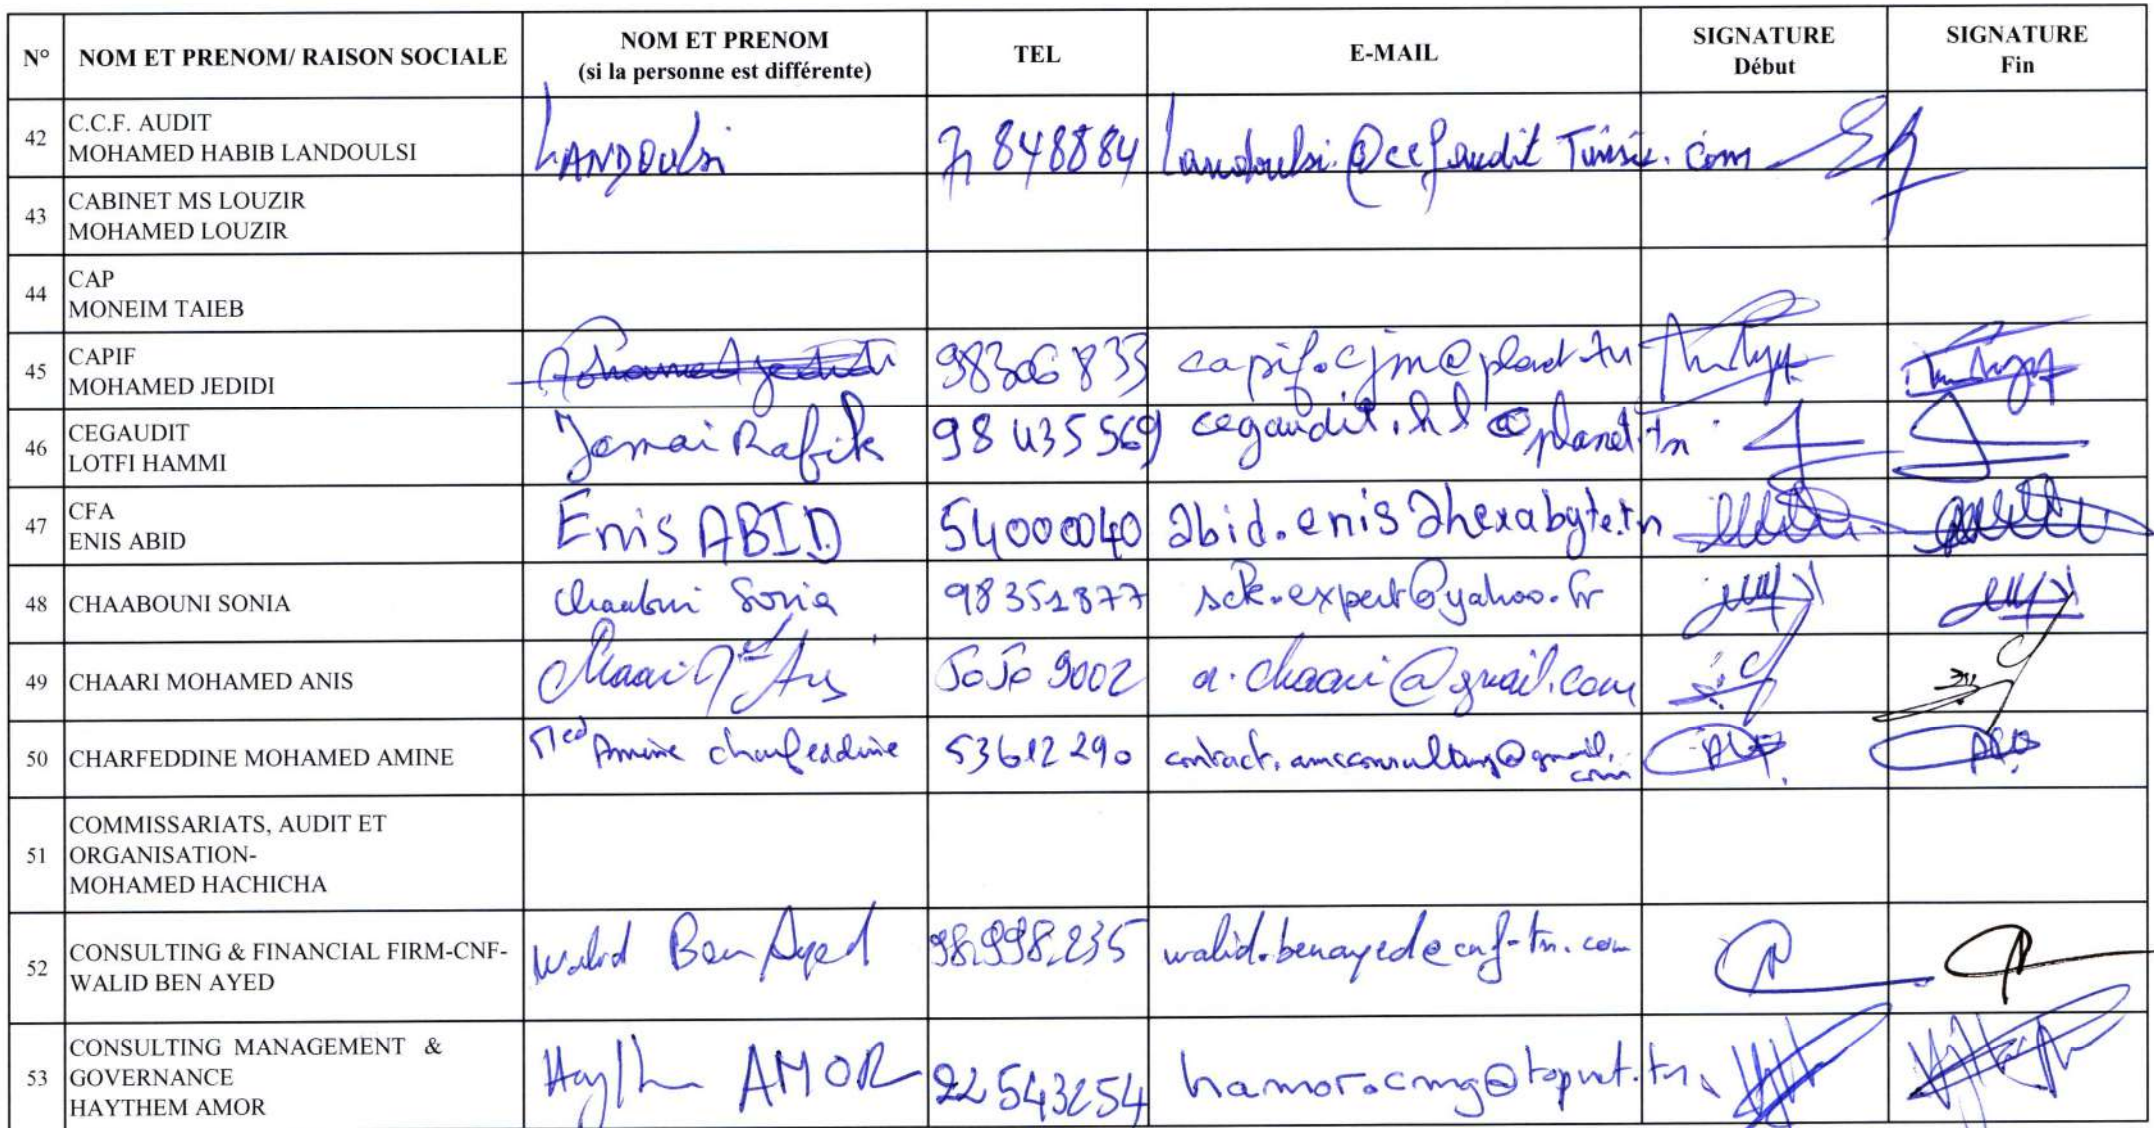 N° NOM ET PRENOM/ RAISON SOCIALE NOM ET PRENOM (si la personne est différente) TEL E-MAIL SIGNATURE Début SIGNATURE Fin
42 C.C.F. AUDIT
MOHAMED HABIB LANDOULSI LANDOULSI 71 848884 Landoulsi@ccfauditTunisie.com
43 CABINET MS LOUZIR
MOHAMED LOUZIR
44 CAP
MONEIM TAIEB
45 CAPIF
MOHAMED JEDIDI Mohamed Jedidi 98306833 capif.cjm@planet.tn
46 CEGAUDIT
LOTFI HAMMI Jomai Rafik 98 435 569 cegaudit.hl@planet.tn
47 CFA
ENIS ABID Enis ABID 54000040 abid.enis@hexabyte.tn
48 CHAABOUNI SONIA Chaabouni Sonia 98351877 sck.expert@yahoo.fr
49 CHAARI MOHAMED ANIS Chaari Med Anis 5050 9002 a.chaari@gmail.com
50 CHARFEDDINE MOHAMED AMINE Med Amine charfeddine 53612290 contact.amcconsulting@gmail.com
51 COMMISSARIATS, AUDIT ET
ORGANISATION-
MOHAMED HACHICHA
52 CONSULTING & FINANCIAL FIRM-CNF-
WALID BEN AYED Walid Ben Ayed 98.998.235 walid.benayed@cnf-tn.com
53 CONSULTING MANAGEMENT &
GOVERNANCE
HAYTHEM AMOR Haythem AMOR 22543254 hamor.cmg@topnet.tn